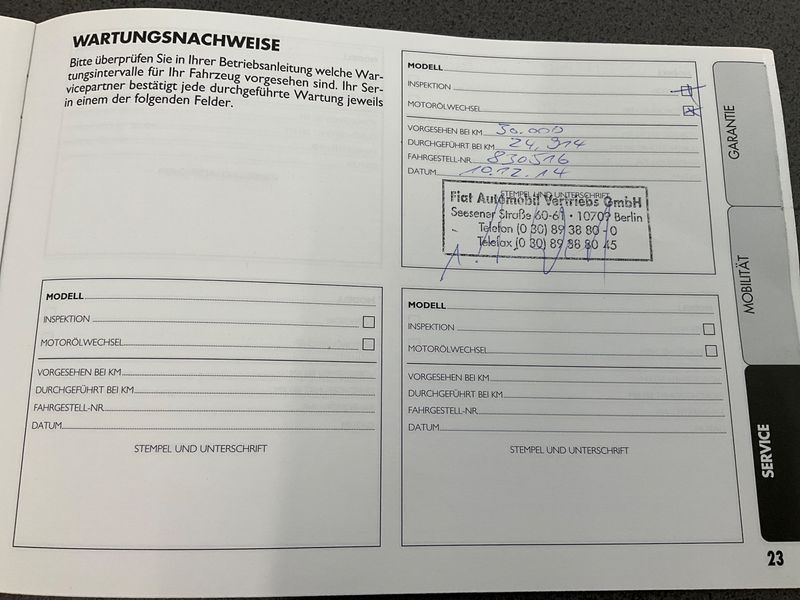 WARTUNGSNACHWEISE
Bitte überprüfen Sie in Ihrer Betriebsanleitung welche War-
tungsintervalle für Ihr Fahrzeug vorgesehen sind. Ihr Ser-
vicepartner bestätigt jede durchgeführte Wartung jeweils
in einem der folgenden Felder.
MODELL
INSPEKTION
MOTORÖLWECHSEL
VORGESEHEN BEI KM 30.000
DURCHGEFÜHRT BEI KM 24,314
FAHRGESTELL-NR. 830516
DATUM 10.12.14
STEMPEL UND UNTERSCHRIFT
Fiat Automobil Vertriebs GmbH
Seesener Straße 60-61 · 10709 Berlin
Telefon (0 30) 89 38 80 - 0
Telefax (0 30) 89 38 80 45
MODELL
INSPEKTION
MOTORÖLWECHSEL
VORGESEHEN BEI KM
DURCHGEFÜHRT BEI KM
FAHRGESTELL-NR.
DATUM
STEMPEL UND UNTERSCHRIFT
MODELL
INSPEKTION
MOTORÖLWECHSEL
VORGESEHEN BEI KM
DURCHGEFÜHRT BEI KM
FAHRGESTELL-NR.
DATUM
STEMPEL UND UNTERSCHRIFT
GARANTIE
MOBILITÄT
SERVICE
23